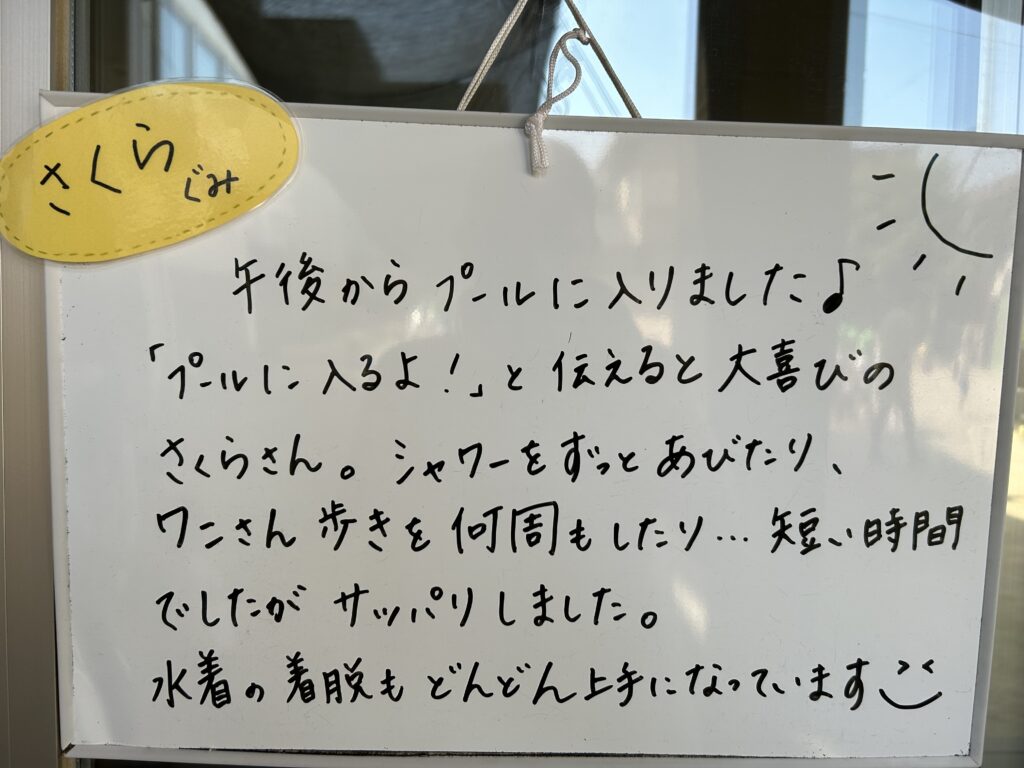 さくらぐみ
午後からプールに入りました♪
「プールに入るよ！」と伝えると大喜びの
さくらさん。シャワーをずっとあびたり、
ワニさん歩きを何周もしたり…短い時間
でしたがサッパリしました。
水着の着脱もどんどん上手になっています